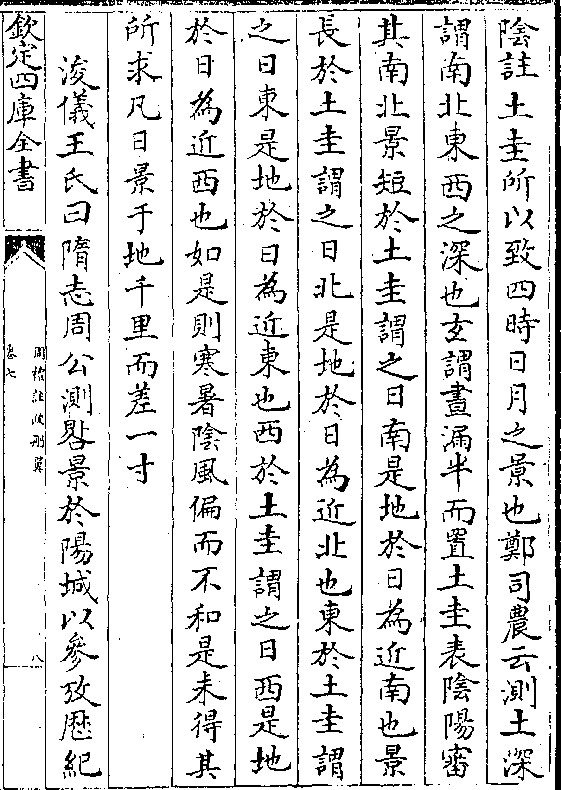 陰註土圭所以致四時日月之景也鄭司農云測土深
謂南北東西之深也玄謂晝漏半而置土圭表陰陽審
其南北景短於土圭謂之日南是地於日為近南也景
長於土圭謂之日北是地於日為近北也東於土圭謂
之日東是地於日為近東也西於土圭謂之日西是地
於日為近西也如是則寒暑陰風偏而不和是未得其
所求凡日景于地千里而差一寸
浚儀王氏曰隋志周公測晷景於陽城以參攷厯紀
欽定四庫全書
周禮註疏刪翼
卷七
八